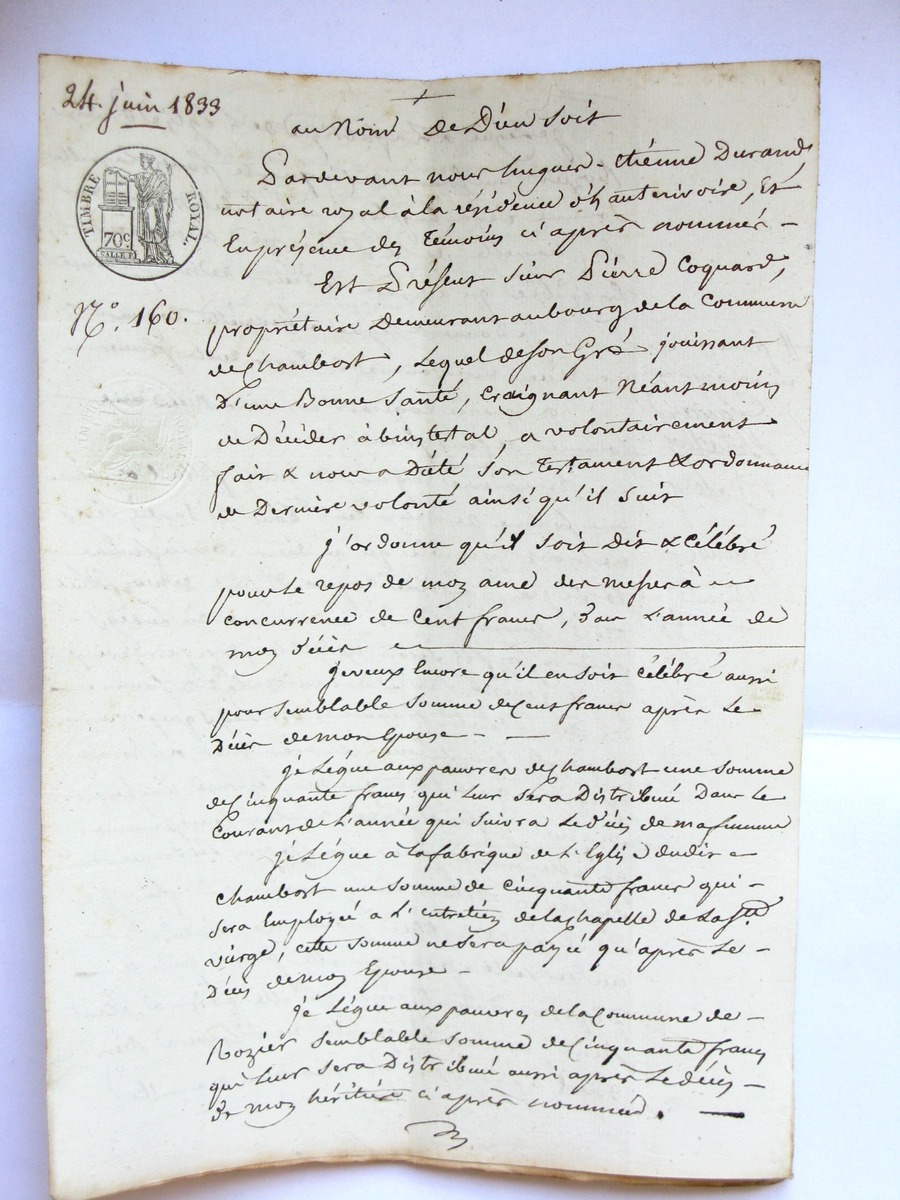 24. juin 1833
au Nom De Dieu Soit
TIMBRE ROYAL.
70c
SALLE F.
N°. 160.
Pardevant nous hugues-étiénne Durand
notaire royal à la résidence d'hauterivoire, Et
En présence des témoins ci après nommés -
Est Présent Sieur Pierre Coquard,
propriétaire Demeurant au bourg de la Commune
de Chambost, Lequel de son Gré jouissant
D'une Bonne Santé, craignant Néantmoins
de Décéder àbintestat, a volontairement
fait & nous a Dicté Son testament & ordonnance
de Dernière volonté ainsi qu'il Suit
j'ordonne qu'il soit Dit & Célébré
pour le repos de mon ame des messes à
concurrence de Cent francs, dans L'année de
mon décès
je veux Encore qu'il en soit Célébré aussi
pour Semblable Somme de Cent francs après Le
Décès de mon Epouse - -
je Légue aux pauvres de Chambost une Somme
de Cinquante francs qui Leur Sera Distribué Dans Le
Courant de L'année qui Suivra Le décès de ma femme
je Légue à la fabrique de L'Eglise dudit
Chambost une Somme de Cinquante francs qui -
sera Employé a L'entretien de la chapelle de La Ste
vierge, cette Somme ne Sera payée qu'après Le -
Décès de mon Epouse -
je Légue aux pauvres de la Commune de -
Rozier Semblable Somme de Cinquante francs
qui Leur Sera Distribué aussi après Le décès -
de mon héritière ci après nommée. -